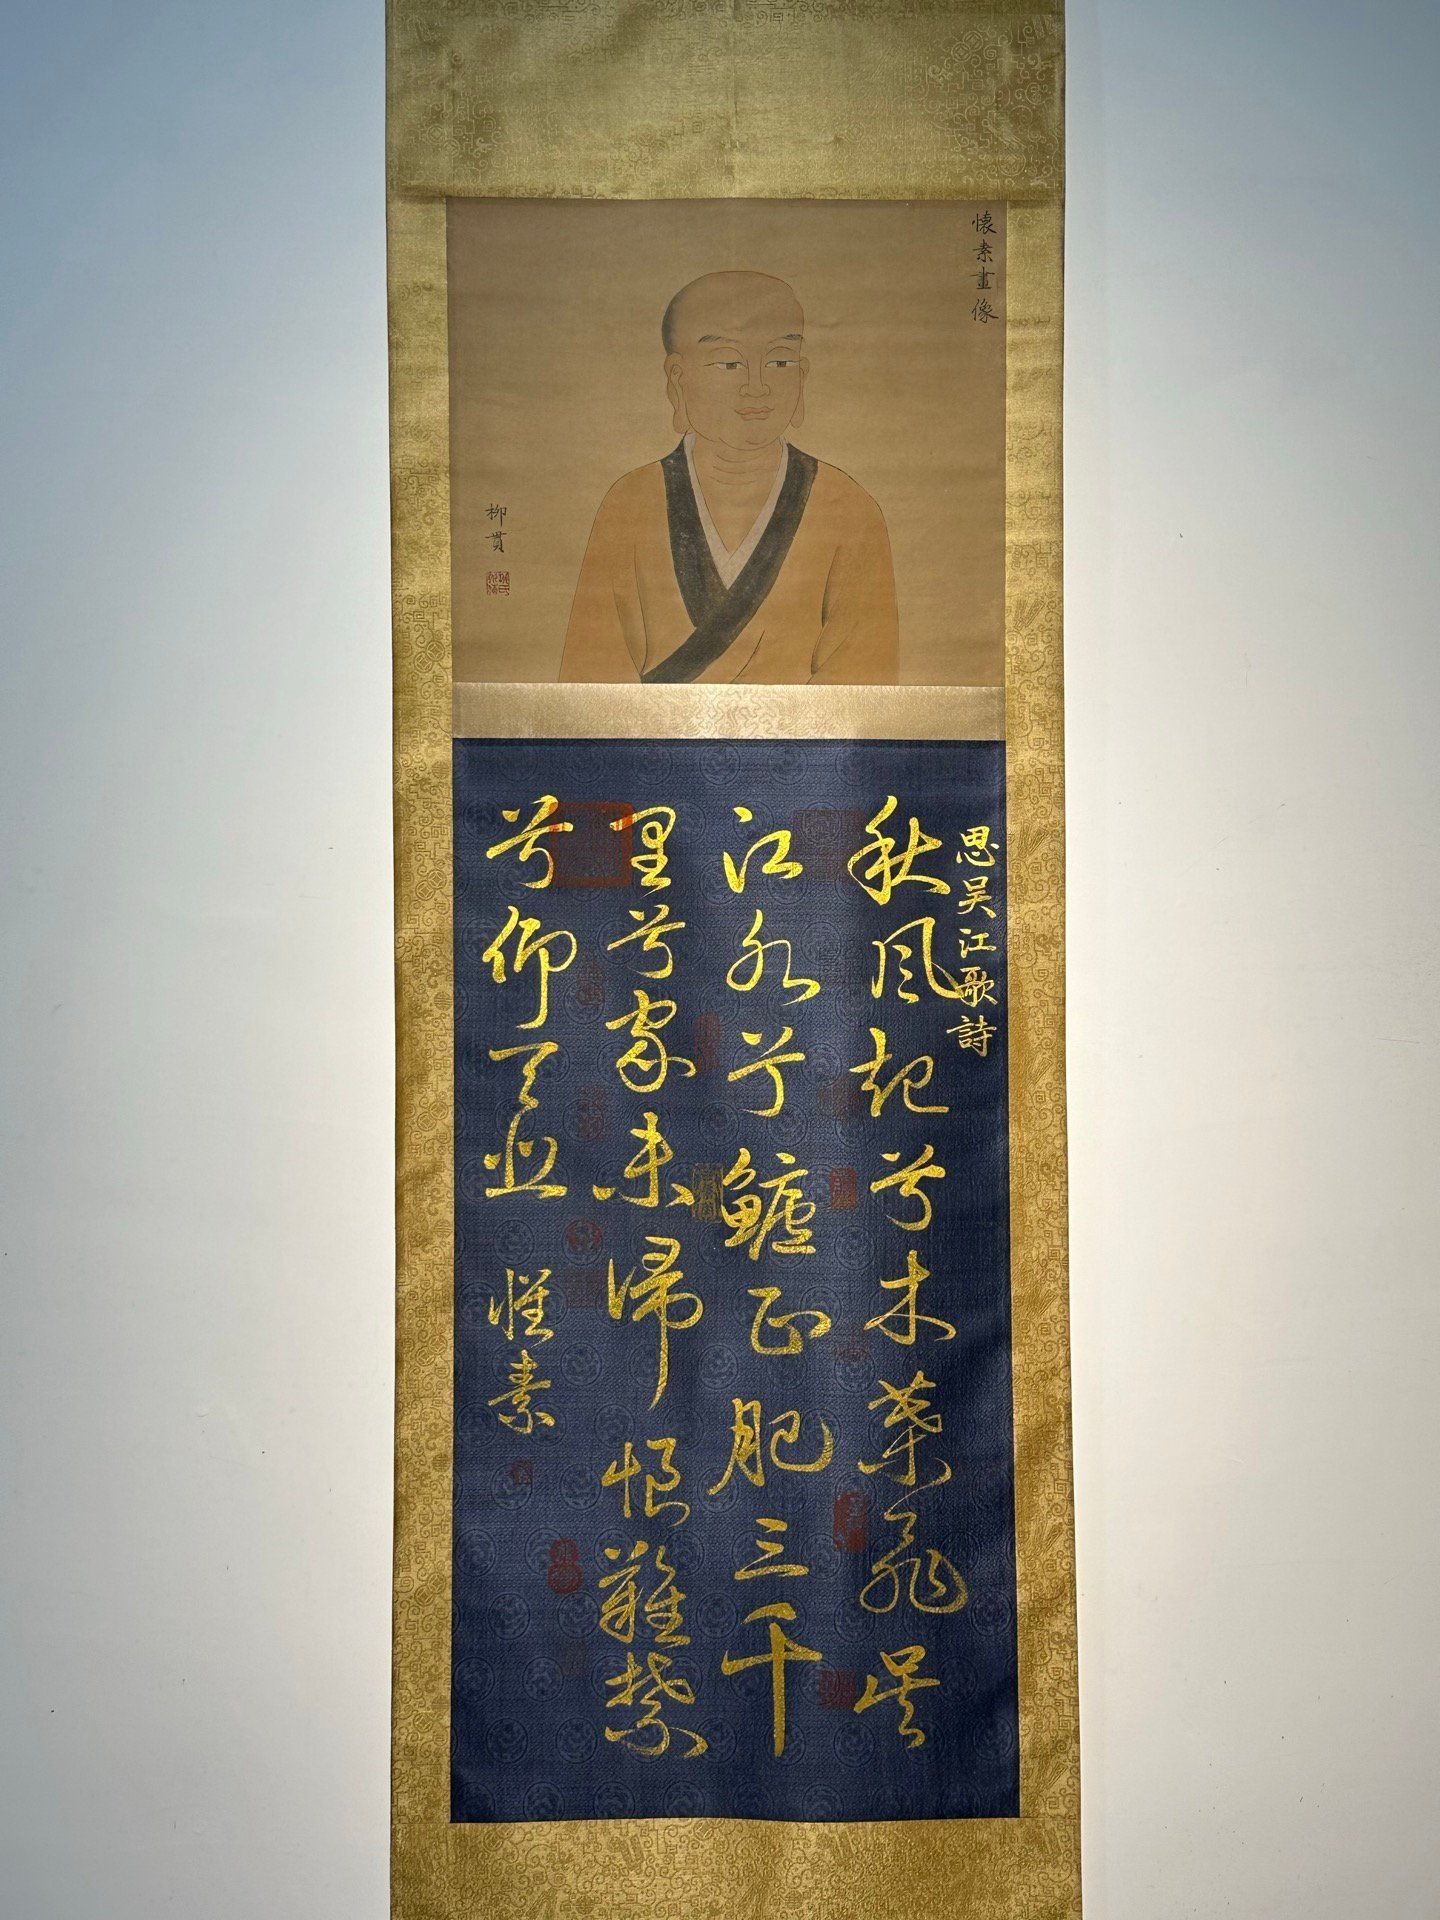 懷素畫像
柳貫
思吴江歌詩
秋风起兮木葉飛吴
江水兮鱸正肥三千
里兮家未歸恨難禁
兮仰天悲
懷素